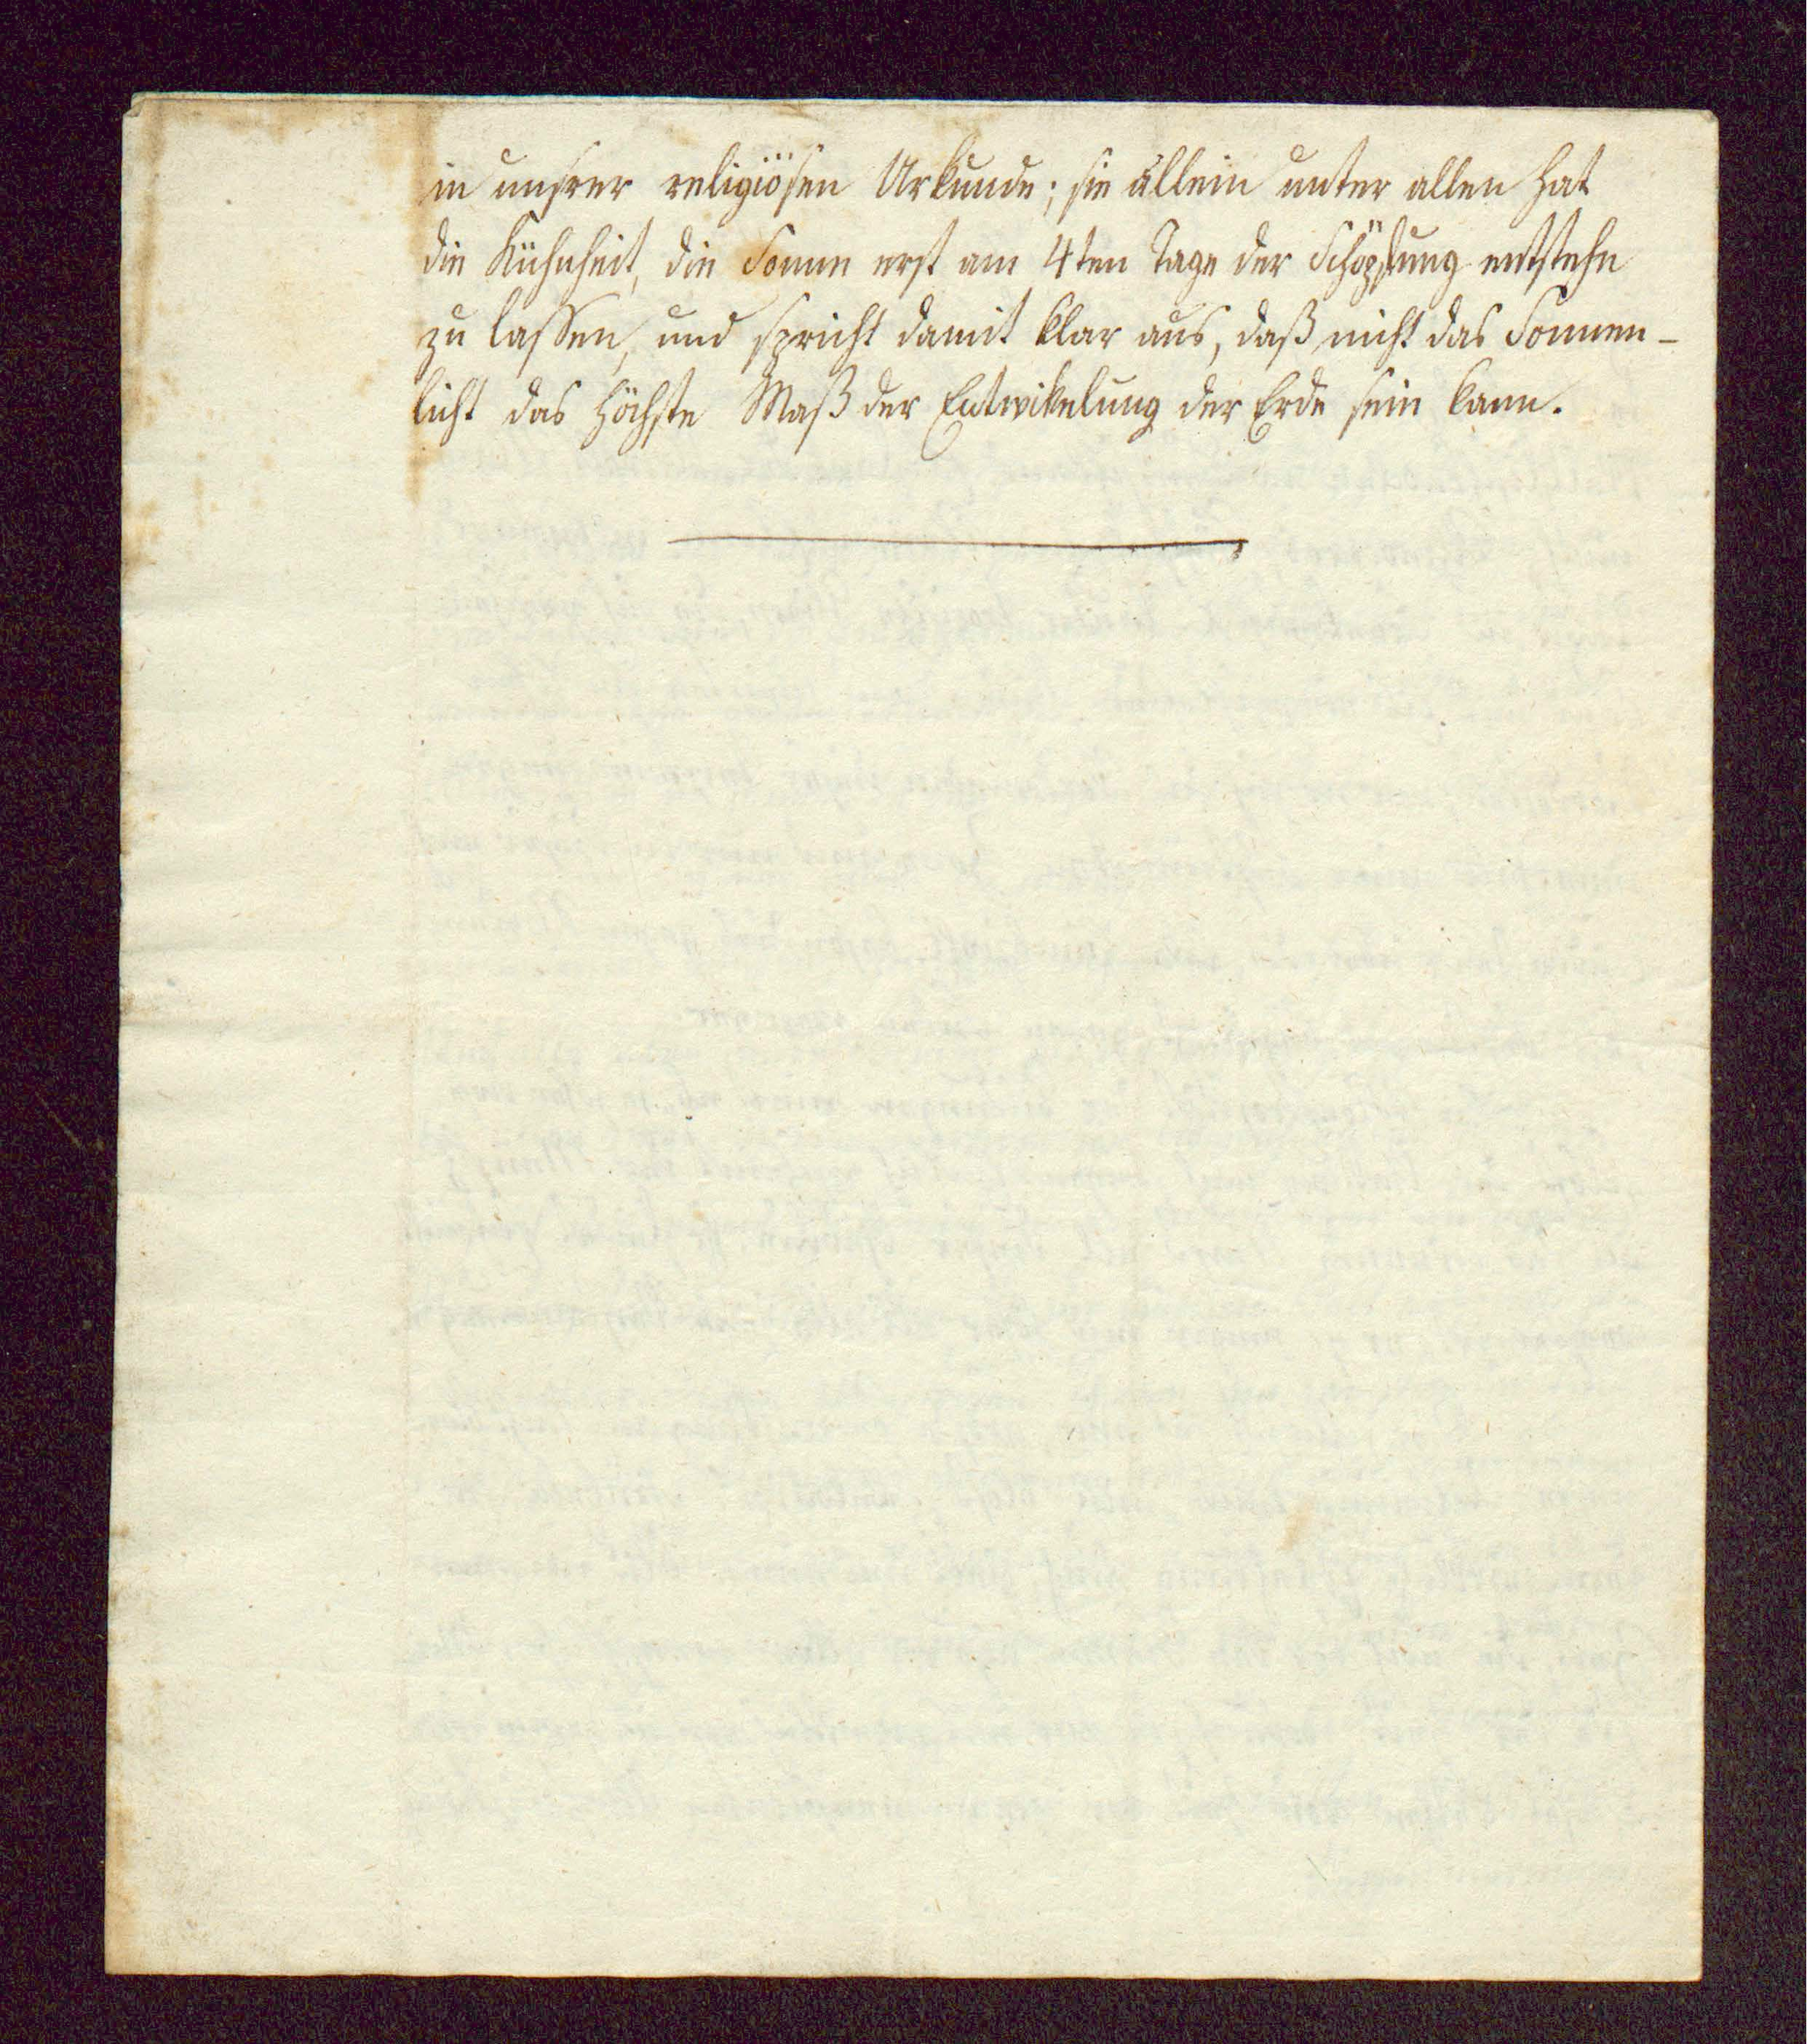 in unsrer religiösen Urkunde; sie allein unter allen hat
die Kühnheit, die Sonne erst am 4ten Tage der Schöpfung entstehn
zu lassen, und spricht damit klar aus, daß nicht das Sonnen-
licht das höchste Maß der Entwikelung der Erde sein kann.